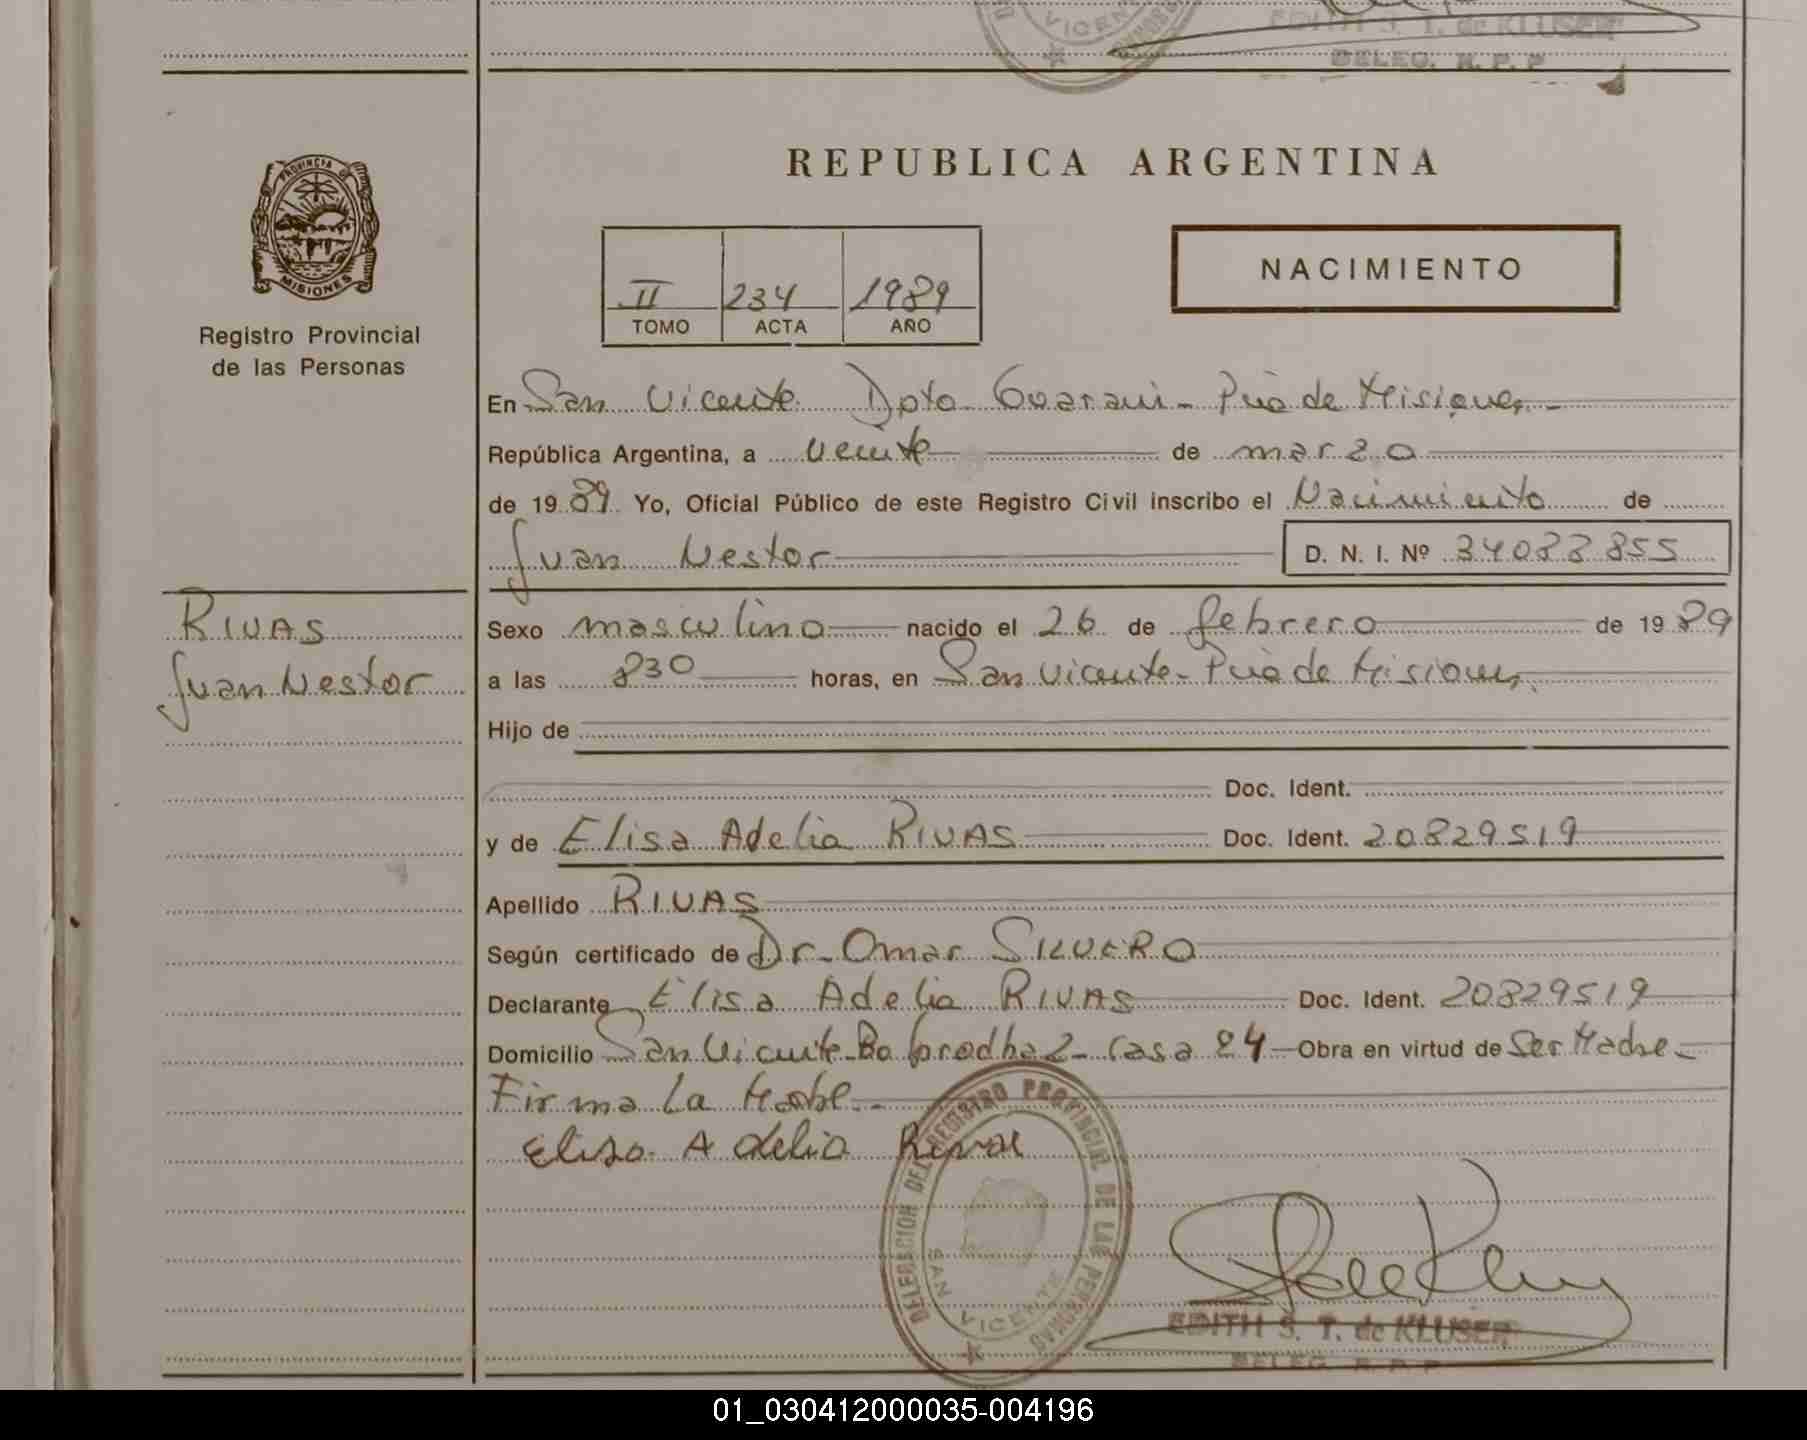 VICENTE
EDITH S. T. de KLUSER
DELEG. R. P. P
PROVINCIA DE
MISIONES
Registro Provincial
de las Personas
REPUBLICA ARGENTINA
II 234 1989
TOMO ACTA AÑO
NACIMIENTO
En San Vicente Dpto Guarani - Pcia de Misiones -
República Argentina, a veinte de marzo
de 1989 Yo, Oficial Público de este Registro Civil inscribo el Nacimiento de
Juan Nestor D. N. I. Nº 34088855
RIVAS
Juan Nestor
Sexo masculino nacido el 26 de febrero de 1989
a las 830 horas, en San Vicente - Pcia de Misiones.
Hijo de
Doc. Ident.
y de Elisa Adelia RIVAS Doc. Ident. 20829519
Apellido RIVAS
Según certificado de Dr. Omar SILVERO
Declarante Elisa Adelia RIVAS Doc. Ident. 20829519
Domicilio San Vicente - Bo 2 - Casa 24 - Obra en virtud de Ser Madre -
Firma La Madre. -
Elisa Adelia Rivas
DELEGACION DEL REGISTRO PROVINCIAL DE LAS PERSONAS
SAN VICENTE
EDITH S. T. de KLUSER
DELEG. R. P. P
01_030412000035-004196